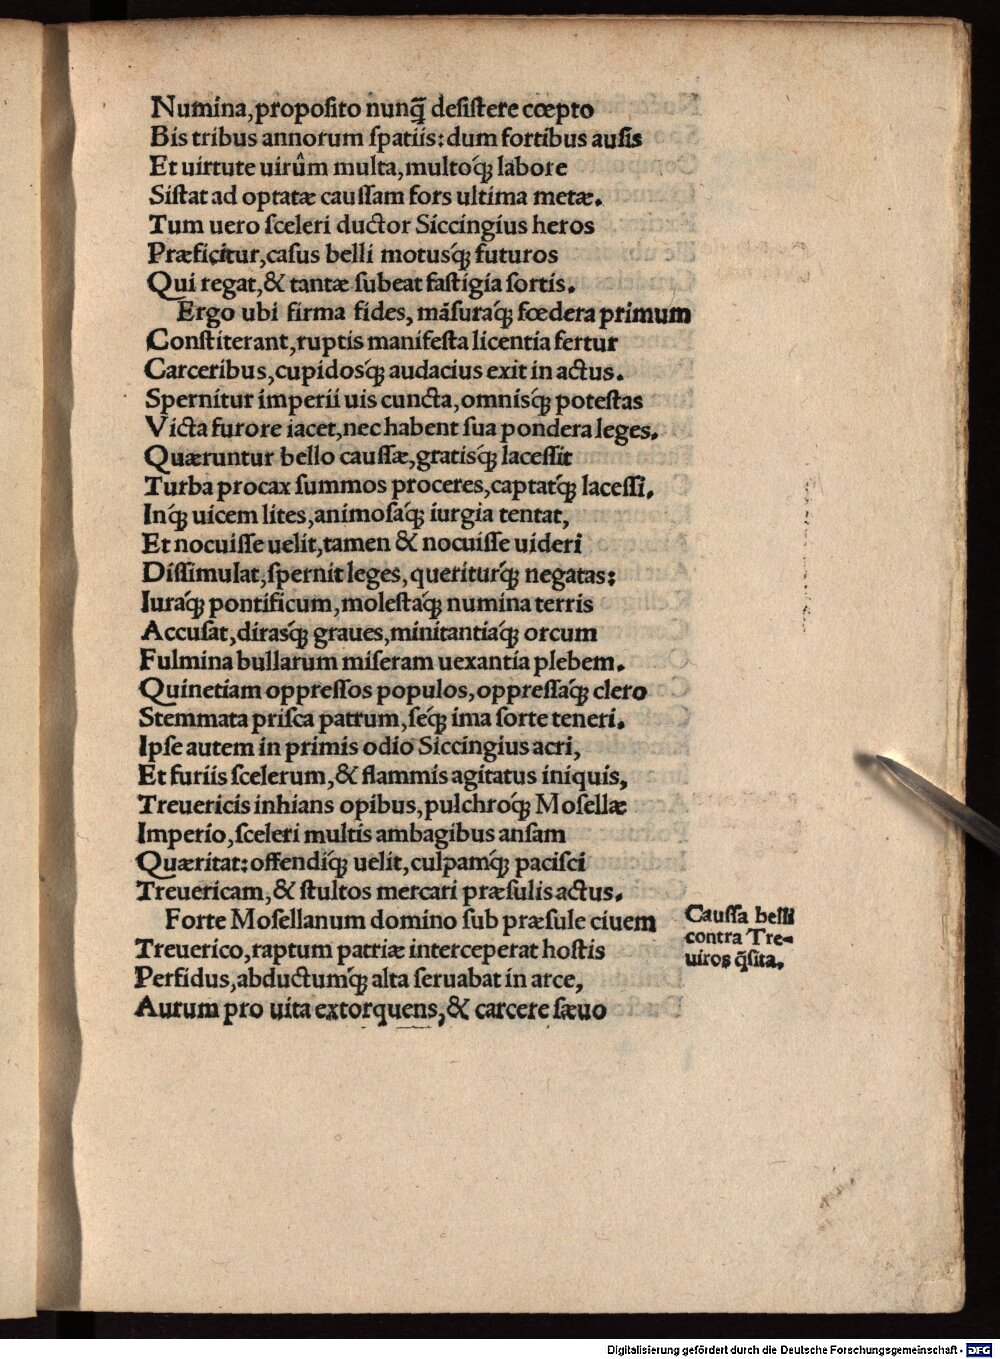 Numina,proposito nunq̃ desistere cœpto
Bis tribus annorum spatiis:dum fortibus ausis
Et uirtute uirûm multa,multoq́; labore
Sistat ad optatæ caussam fors ultima metæ.
Tum uero sceleri ductor Siccingius heros
Præficitur,casus belli motusq́; futuros
Qui regat,& tantæ subeat fastigia sortis.
Ergo ubi firma fides, mãsuraq́; fœdera primum
Constiterant,ruptis manifesta licentia fertur
Carceribus,cupidosq́; audacius exit in actus.
Spernitur imperii uis cuncta,omnisq́; potestas
Victa furore iacet,nec habent sua pondera leges.
Quæruntur bello caussæ,gratisq́; lacessit
Turba procax summos proceres,captatq́; lacessi.
Inq́; uicem lites,animosaq́; iurgia tentat,
Et nocuisse uelit,tamen & nocuisse uideri
Dissimulat,spernit leges,queriturq́; negatas:
Iuraq́; pontificum,molestaq́; numina terris
Accusat,dirasq́; graues,minitantiaq́; orcum
Fulmina bullarum miseram uexantia plebem.
Quinetiam oppressos populos,oppressaq́; clero
Stemmata prisca patrum,seq́; ima sorte teneri.
Ipse autem in primis odio Siccingius acri,
Et furiis scelerum,& flammis agitatus iniquis,
Treuericis inhians opibus,pulchroq́; Mosellæ
Imperio,sceleri multis ambagibus ansam
Quæritat:offendiq́; uelit,culpamq́; pacisci
Treuericam,& stultos mercari præsulis actus.
Forte Mosellanum domino sub præsule ciuem
Treuerico,raptum patriæ interceperat hostis
Perfidus,abductumq́; alta seruabat in arce,
Aurum pro uita extorquens,& carcere sæuo
Caussa belli
contra Tre-
uiros q̃sita.
Digitalisierung gefördert durch die Deutsche Forschungsgemeinschaft - DFG